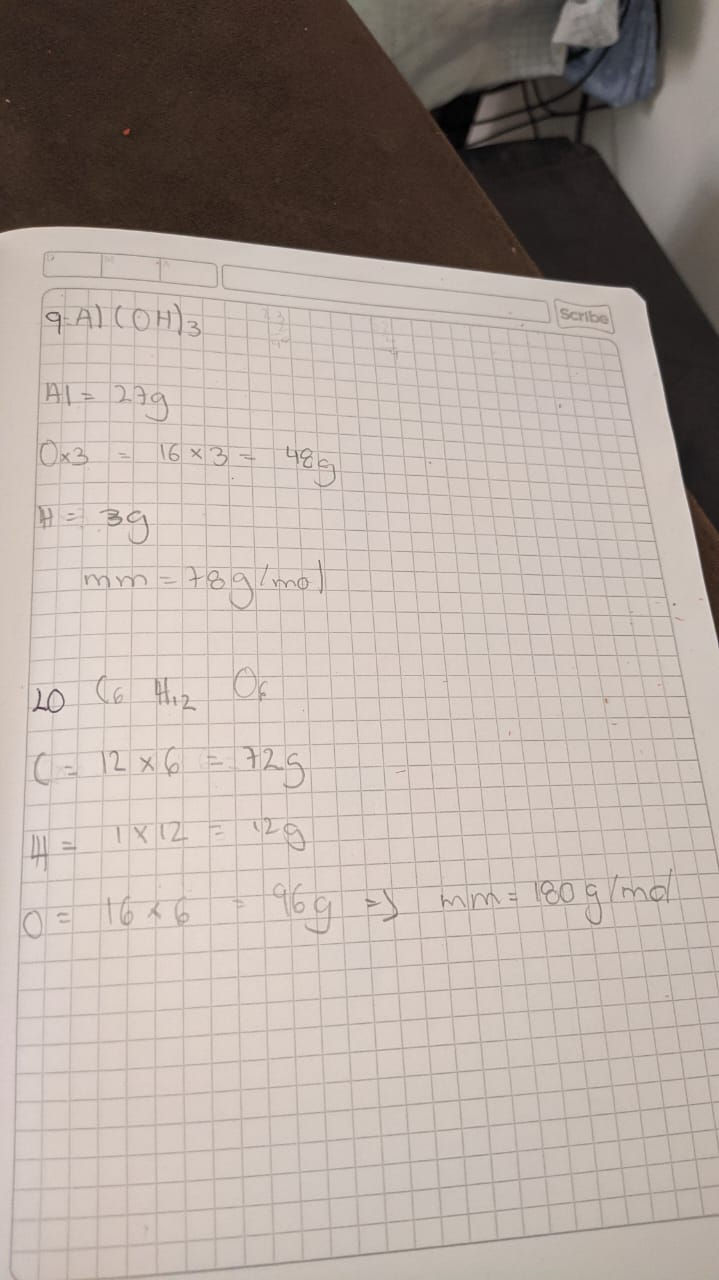 Scribe
9. Al(OH)3
Al = 27g
O×3 = 16 × 3 = 48g
H = 3g
mm = 78g/mol
10 C6 H12 O6
C = 12 × 6 = 72g
H = 1 × 12 = 12g
O = 16 × 6 = 96g => mm = 180g/mol